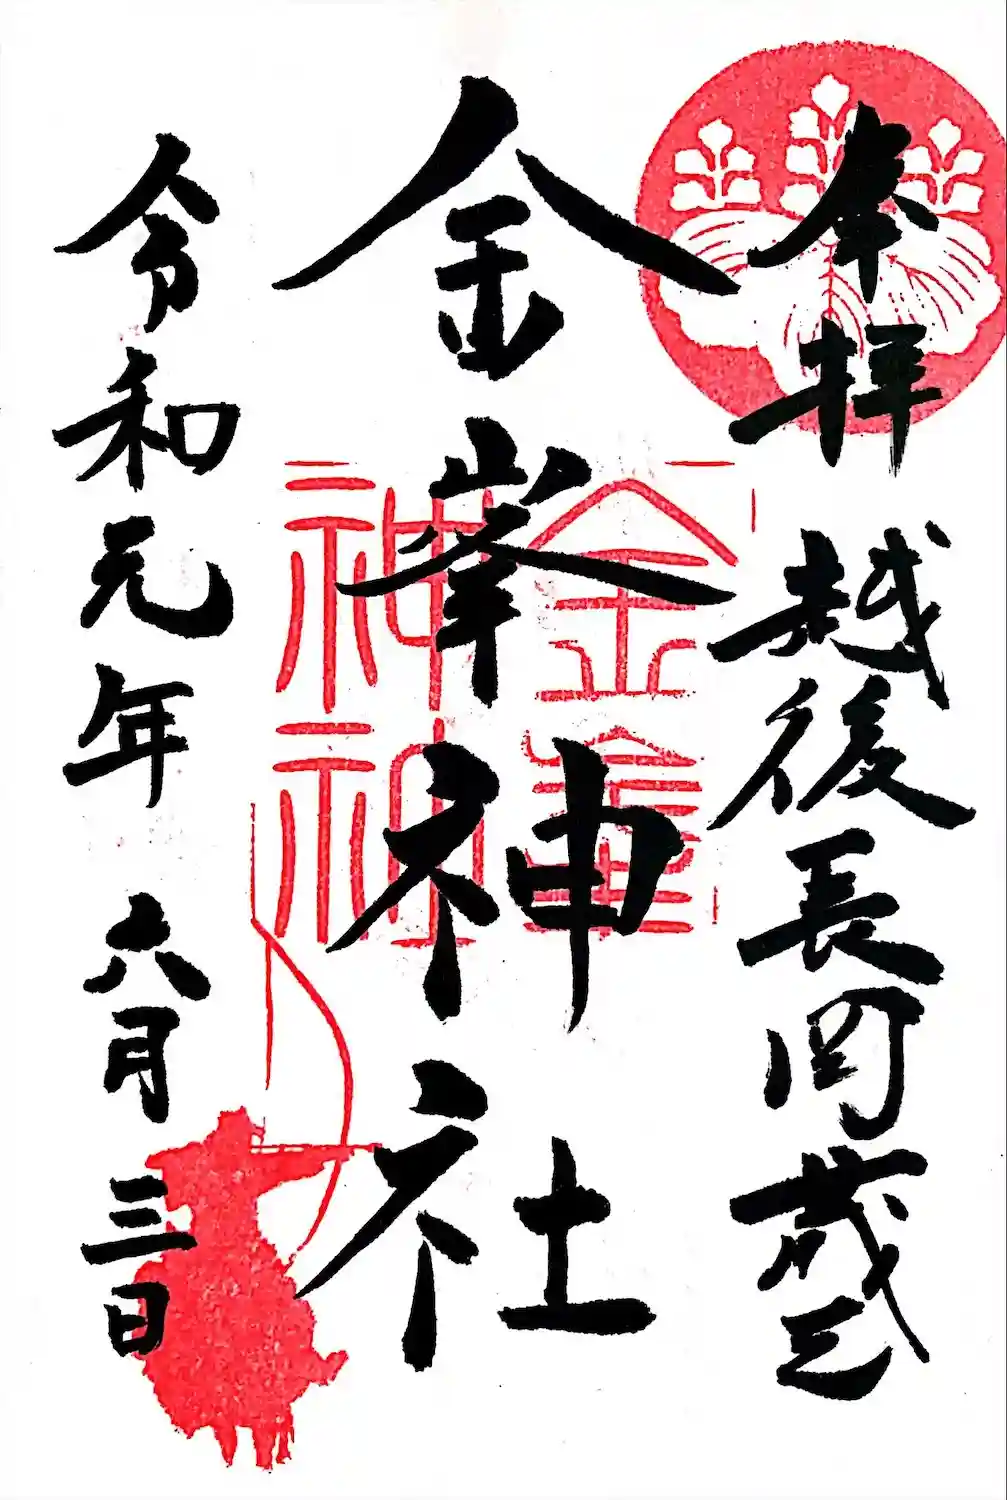 奉拝 越後長岡蔵王
金峯神社
令和元年六月三日